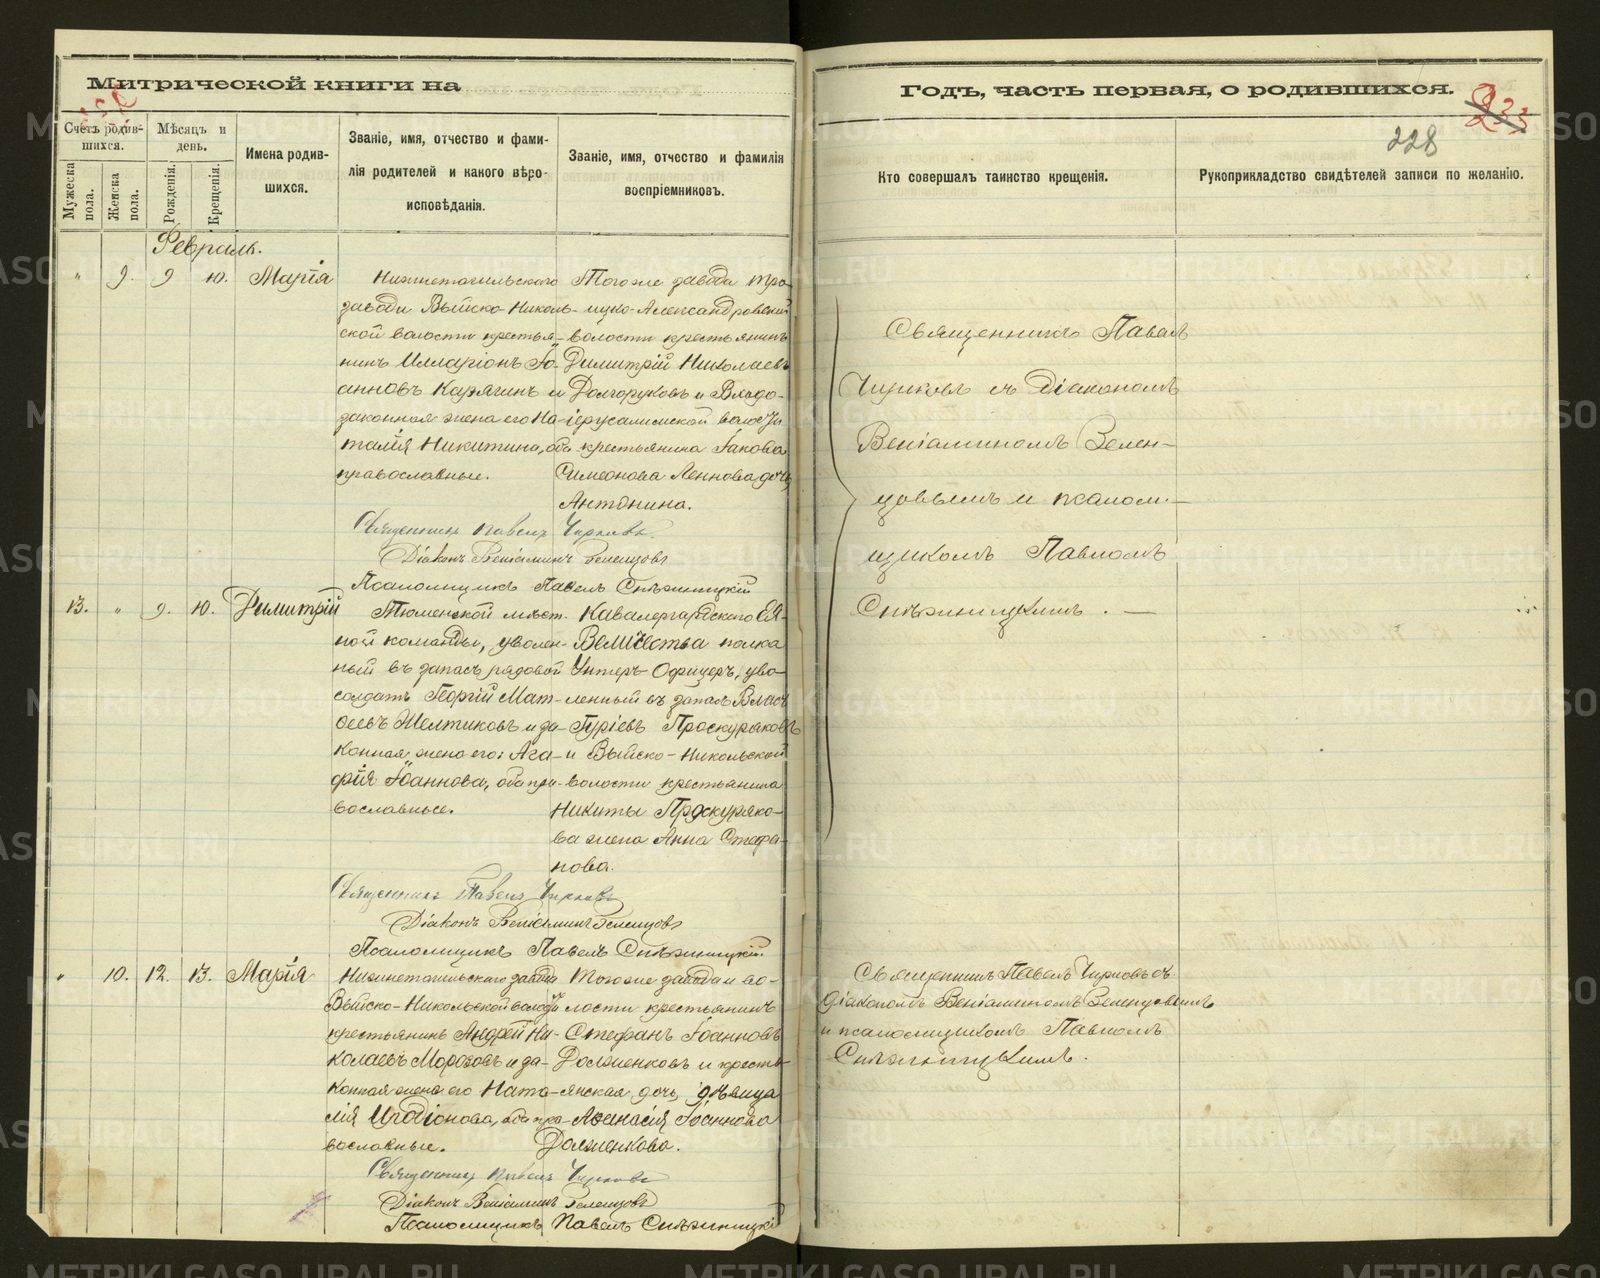 Митрической книги на
Годъ, часть первая, о родившихся.
233
228
Счетъ родив-
шихся.
Мужеска пола.
Женска пола.
Мѣсяцъ и
день.
Рожденія.
Крещенія.
Имена родив-
шихся.
Званіе, имя, отчество и фами-
лія родителей и какого вѣро-
исповѣданія.
Званіе, имя, отчество и фамилія
воспріемниковъ.
Кто совершалъ таинство крещенія.
Рукоприкладство свидѣтелей записи по желанію.
Февраль.
" 9. 9 10. Марія
Нижнетагильскаго
завода Выйско-Николь-
ской волости крестья-
нинъ Илларіонъ Іо-
анновъ Карягинъ и
законная жена его На-
талія Никитина, оба
православные.
Тогоже завода Тро-
ицко-Александровской
волости крестьянинъ
Димитрій Николаевъ
Долгоруковъ и Владо-
іерусалимской волости
крестьянина Іакова
Симеонова Леннова дочь
Антонина.
Священникъ Павелъ Чирковъ.
Діаконъ Веніаминъ Зеленцовъ
Псаломщикъ Павелъ Снѣжницкій
Священникъ Павелъ
Чирковъ съ Діакономъ
Веніаминомъ Зелен-
цовымъ и псалом-
щикомъ Павломъ
Снѣжницкимъ. —
13. " 9. 10. Димитрій
Тюменской мѣст-
ной команды, уволен-
ный въ запасъ рядовой
солдатъ Георгій Мат-
ѳеевъ Желтиковъ и за-
конная жена его Ага-
фія Іоаннова, оба пра-
вославные.
Кавалергардскаго ЕЯ
Величества полка
Унтеръ-Офицеръ, уво-
ленный въ запасъ Власъ
Гуріевъ Проскуряковъ
и Выйско-Никольской
волости крестьянина
Никиты Проскуряко-
ва жена Анна Стефа-
нова.
Священникъ Павелъ Чирковъ
Діаконъ Веніаминъ Зеленцовъ
Псаломщикъ Павелъ Снѣжницкій.
" 10. 12. 13. Марія
Нижнетагильскаго завода
Выйско-Никольской волости
крестьянинъ Андрей Ни-
колаевъ Морозовъ и за-
конная жена его Ната-
лія Иродіонова, оба пра-
вославные.
Тогоже завода и во-
лости крестьянинъ
Стефанъ Іоанновъ
Долженковъ и кресть-
янская дочь, дѣвица
Аѳанасія Іоаннова
Долженкова.
Священникъ Павелъ Чирковъ
Діаконъ Веніаминъ Зеленцовъ
Псаломщикъ Павелъ Снѣжницкій
Священникъ Павелъ Чирковъ съ
Діакономъ Веніаминомъ Зеленцовымъ
и псаломщикомъ Павломъ
Снѣжницкимъ.
METRIKI.GASO-URAL.RU